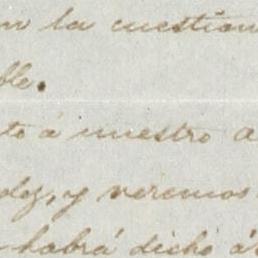 la cuestion
ble.
to á nuestro a
doz, y veremos
habrá dicho á